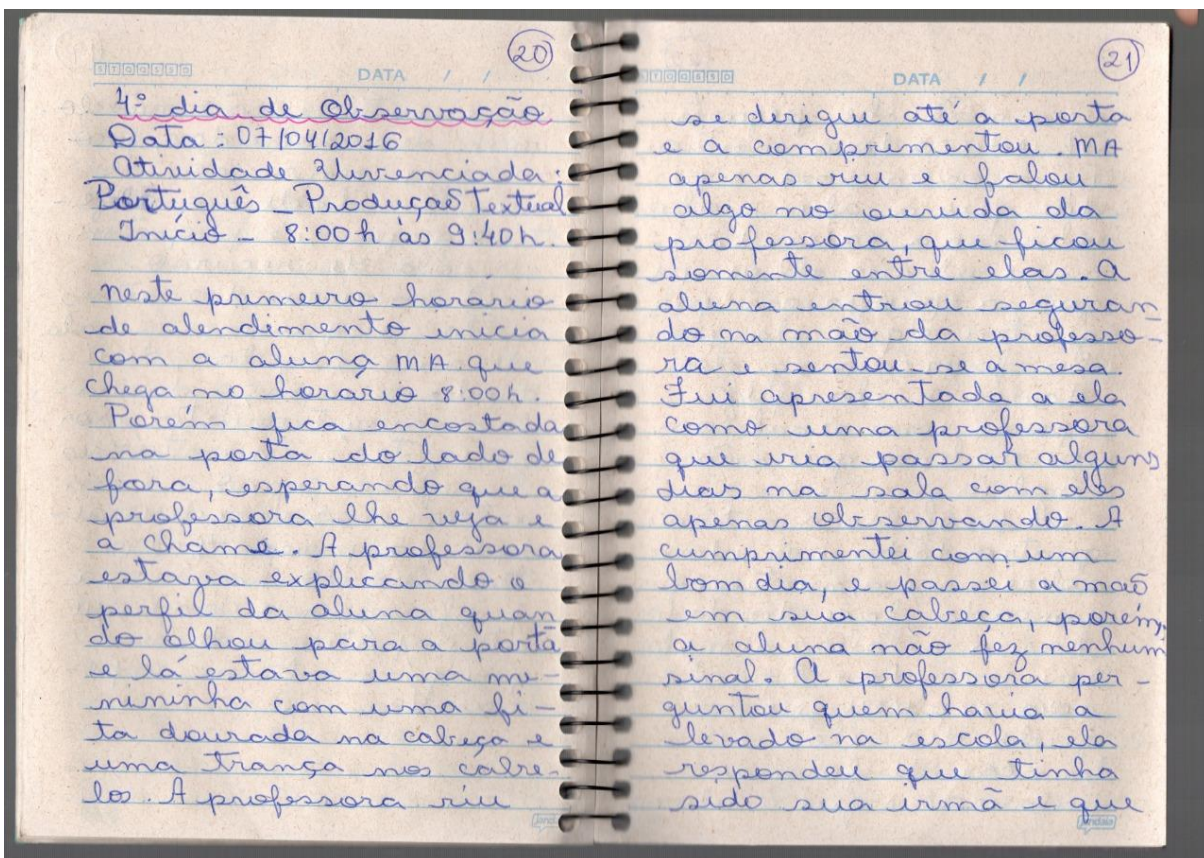 20
STQQSSD
DATA / /
4º dia de Observação
Data: 07/04/2016
Atividade Vivenciada:
Português - Produção Textual
Início - 8:00h às 9:40h.
neste primeiro horário
de atendimento inicia
com a aluna MA que
chega no horário 8:00h.
Porém fica encostada
na porta do lado de
fora, esperando que a
professora lhe veja e
a chame. A professora
estava explicando o
perfil da aluna quan
do olhou para a porta
e lá estava uma me-
nininha com uma fi-
ta dourada na cabeça e
uma trança nos cabe-
los. A professora riu
21
STQQSSD
DATA / /
se dirigiu até a porta
e a comprimentou. MA
apenas riu e falou
algo no ouvido da
professora, que ficou
somente entre elas. A
aluna entrou seguran
do na mão da professo-
ra e sentou-se a mesa.
Fui apresentada a ela
como uma professora
que iria passar alguns
dias na sala com eles
apenas observando. A
cumprimentei com um
bom dia, e passei a mão
em sua cabeça, porém,
a aluna não fez nenhum
sinal. A professora per-
guntou quem havia a
levado na escola, ela
respondeu que tinha
sido sua irmã e que
jandaia